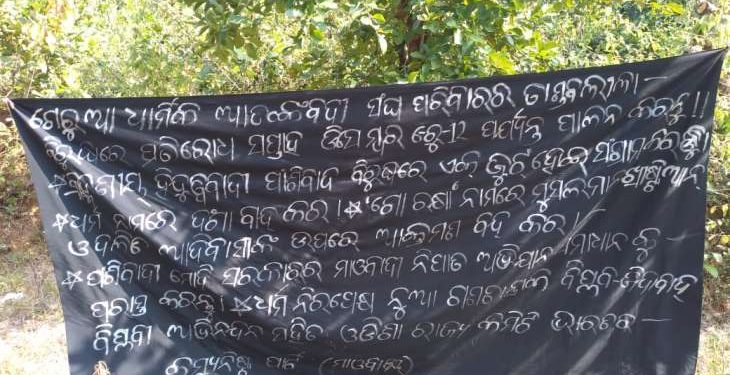 ଗେରୁଆ ଧାର୍ମିକ ଆତଙ୍କବାଦୀ ସଂଘ ପରିବାରର ତାଣ୍ଡବଲୀଳା —
ବିରୁଦ୍ଧରେ ପ୍ରତିରୋଧ ସପ୍ତାହ ଡିସେମ୍ବର ପର୍ଯ୍ୟନ୍ତ ପାଳନ କରନ୍ତୁ !!
ହିନ୍ଦୁତ୍ୱବାଦୀ ଫାସିବାଦ ବିରୁଦ୍ଧରେ ଏକ ଜୁଟ ହୋଇ ସଂଗ୍ରାମ କରନ୍ତୁ।
★ ଧର୍ମ ନାମରେ ଦଙ୍ଗା ବନ୍ଦ କର। ★ 'ଗୋ ରକ୍ଷା' ନାମରେ ମୁସଲମାନ ଖ୍ରୀଷ୍ଟିଆନ୍
ଓ ଦଳିତ ଆଦିବାସୀଙ୍କ ଉପରେ ଆକ୍ରମଣ ବନ୍ଦ କର। —
★ ଫାସିବାଦୀ ମୋଦି ସରକାରର ମାଓବାଦୀ ନିପାତ ଅଭିଯାନ ସମାଧାନ କୁ —
ପରାସ୍ତ କରନ୍ତୁ। ★ ଧର୍ମ ନିରପେକ୍ଷ ନୂଆ ଗଣତାନ୍ତ୍ରିକ ବିପ୍ଳବ-ଜିନ୍ଦାବାଦ
ବିପ୍ଳବୀ ଅଭିନନ୍ଦନ ସହିତ ଓଡିଶା ରାଜ୍ୟ କମିଟି ଭାରତର —
କମ୍ୟୁନିଷ୍ଟ ପାର୍ଟି (ମାଓବାଦୀ)